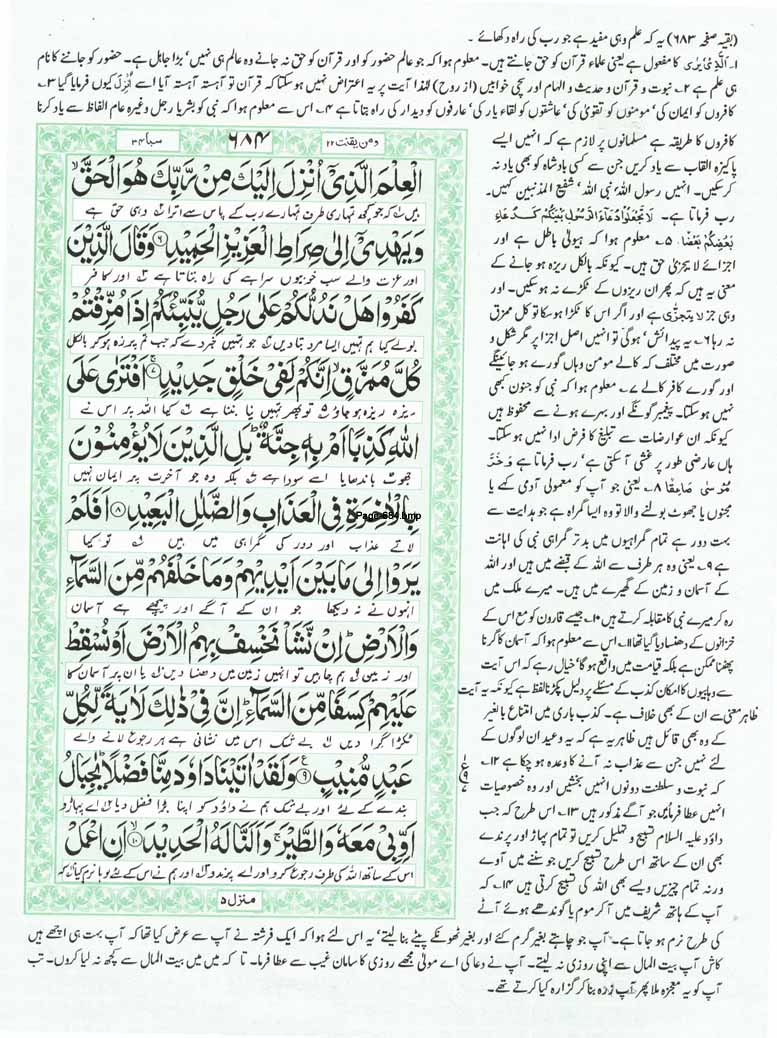 (بقیہ صفحہ ۶۸۳) یہ کہ علم وہی مفید ہے جو رب کی راہ دکھائے۔
۱۔ اَلَّذِیْ یَرَی کا مفعول ہے یعنی علماء قرآن کو حق جانتے ہیں۔ معلوم ہوا کہ جو عالم حضور کو اور قرآن کو حق نہ جانے وہ عالم ہی نہیں' بڑا جاہل ہے۔ حضور کو جاننے کا نام
ہی علم ہے ۲۔ نبوت و قرآن و حدیث و الہام اور سچی خوابیں (از روح) لہٰذا آیت پر یہ اعتراض نہیں ہو سکتا کہ قرآن تو آہستہ آہستہ آیا اسے اُنْزِلَ کیوں فرمایا گیا ۳۔
کافروں کو ایمان کی' مومنوں کو تقویٰ کی' عاشقوں کو لقاء یار کی' عارفوں کو دیدار کی راہ بتاتا ہے ۴۔ اس سے معلوم ہوا کہ نبی کو بشر یا رجل وغیرہ عام الفاظ سے یاد کرنا
کافروں کا طریقہ ہے مسلمانوں پر لازم ہے کہ انہیں ایسے
پاکیزہ القاب سے یاد کریں جن سے کسی بادشاہ کو بھی یاد نہ
کر سکیں۔ انہیں رسول اللہ' نبی اللہ' شفیع المذنبین کہیں۔
رب فرماتا ہے۔ لَا تَجْعَلُوْا دُعَآءَ الرَّسُوْلِ بَیْنَکُمْ کَدُعَآءِ
بَعْضِکُمْ بَعْضًا ۵۔ معلوم ہوا کہ ہیولٰی باطل ہے اور
اجزائے لا یتجزی حق ہیں۔ کیونکہ بالکل ریزہ ہو جانے کے
معنی یہ ہیں کہ پھر ان ریزوں کے ٹکڑے نہ ہو سکیں۔ اور
وہی جز لا یتجزی ہے اور اگر اس کا ٹکڑا ہو سکا تو کل ممزق
نہ رہا ۶۔ یہ پیدائش' ہوگی تو انہیں اصل اجزا پر مگر شکل و
صورت میں مختلف کہ کالے مومن وہاں گورے ہو جائینگے
اور گورے کافر کالے ۷۔ معلوم ہوا کہ نبی کو جنون کبھی
نہیں ہو سکتا۔ پیغمبر گونگے اور بہرے ہونے سے محفوظ ہیں
کیونکہ ان عوارضات سے تبلیغ کا فرض ادا نہیں ہو سکتا۔
ہاں عارضی طور پر غشی آ سکتی ہے' رب فرماتا ہے وَخَرَّ
مُوْسٰی صَعِقًا ۸۔ یعنی جو آپ کو معمولی آدمی کہے یا
مجنوں یا جھوٹ بولنے والا تو وہ ایسا گمراہ ہے جو ہدایت سے
بہت دور ہے تمام گمراہیوں میں بدتر گمراہی نبی کی اہانت
ہے ۹۔ یعنی وہ ہر طرف سے اللہ کے قبضے میں ہیں اور اللہ
کے آسمان و زمین کے گھیرے میں ہیں۔ میرے ملک میں
رہ کر میرے نبی کا مقابلہ کرتے ہیں ۱۰۔ جیسے قارون کو مع اس کے
خزانوں کے دھنسا دیا گیا تھا ۱۱۔ اس سے معلوم ہوا کہ آسمان کا گرنا
پھٹنا ممکن ہے بلکہ قیامت میں واقع ہو گا' خیال رہے کہ اس آیت
سے وہابیوں کا امکان کذب کے مسئلے پر دلیل پکڑنا غلط ہے کیونکہ یہ آیت
ظاہر معنی سے ان کے بھی خلاف ہے۔ کذب باری میں امتناع بالغیر
کے وہ بھی قائل ہیں ظاہر یہ ہے کہ یہ وعید ان لوگوں کے
لئے نہیں جن سے عذاب نہ آنے کا وعدہ ہو چکا ہے ۱۲۔
کہ نبوت و سلطنت دونوں انہیں بخشیں اور وہ خصوصیات
انہیں عطا فرمائیں جو آگے مذکور ہیں ۱۳۔ اس طرح کہ جب
داؤد علیہ السلام تسبیح و تہلیل کریں تو تمام پہاڑ اور پرندے
بھی ان کے ساتھ اس طرح تسبیح کریں جو سننے میں آوے
ورنہ تمام چیزیں ویسے بھی اللہ کی تسبیح کرتی ہیں ۱۴۔ کہ
آپ کے ہاتھ شریف میں آ کر موم یا گوندھے ہوئے آٹے
کی طرح نرم ہو جاتا ہے۔ آپ جو چاہتے بغیر گرم کئے اور بغیر ٹھونکے پیٹے بنا لیتے' یہ اس لئے ہوا کہ ایک فرشتہ نے آپ سے عرض کیا تھا کہ آپ بہت ہی اچھے ہیں
کاش آپ بیت المال سے اپنی روزی نہ لیتے۔ آپ نے دعا کی اے مولیٰ مجھے روزی کا سامان غیب سے عطا فرما۔ تا کہ میں بیت المال سے کچھ نہ لیا کروں۔ تب
آپ کو یہ معجزہ ملا پھر آپ زرہ بنا کر گزارہ کیا کرتے تھے۔
ومن یقنت ۲۲
۶۸۴
سبا ۳۴
الْعِلْمَ الَّذِیْۤ اُنْزِلَ اِلَیْكَ مِنْ رَّبِّكَ هُوَ الْحَقَّ ۙ
ہیں کہ جو کچھ تمہاری طرف تمہارے رب کے پاس سے اترا وہی حق ہے
وَیَهْدِیْۤ اِلٰی صِرَاطِ الْعَزِیْزِ الْحَمِیْدِ ۶ وَقَالَ الَّذِیْنَ
اور عزت والے سب خوبیوں سراہے کی راہ بتاتا ہے اور کافر
كَفَرُوْا هَلْ نَدُلُّكُمْ عَلٰی رَجُلٍ یُّنَبِّئُكُمْ اِذَا مُزِّقْتُمْ
بولے کیا ہم تمہیں ایسا مرد بتادیں جو تمہیں خبر دے کہ جب تم پرزہ ہو کر بالکل
كُلَّ مُمَزَّقٍ ۙ اِنَّكُمْ لَفِیْ خَلْقٍ جَدِیْدٍ ۷ اَفْتَرٰی عَلَی
ریزہ ریزہ ہو جاؤ تو پھر تمہیں نیا بننا ہے کیا اللہ پر اس نے
اللّٰهِ كَذِبًا اَمْ بِهٖ جِنَّةٌ ؕ بَلِ الَّذِیْنَ لَا یُؤْمِنُوْنَ
جھوٹ باندھا یا اسے سودا ہے بلکہ وہ جو آخرت پر ایمان نہیں
بِالْاٰخِرَةِ فِی الْعَذَابِ وَالضَّلٰلِ الْبَعِیْدِ ۸ اَفَلَمْ
Page-684.bmp
لاتے عذاب اور دور کی گمراہی میں ہیں تو کیا
یَرَوْا اِلٰی مَا بَیْنَ اَیْدِیْهِمْ وَمَا خَلْفَهُمْ مِّنَ السَّمَآءِ
انہوں نے نہ دیکھا جو ان کے آگے اور پیچھے ہے آسمان
وَالْاَرْضِ ؕ اِنْ نَّشَاْ نَخْسِفْ بِهِمُ الْاَرْضَ اَوْ نُسْقِطْ
اور زمین ہم چاہیں تو انہیں زمین میں دھنسا دیں یا ان پر آسمان کا
عَلَیْهِمْ كِسَفًا مِّنَ السَّمَآءِ ؕ اِنَّ فِیْ ذٰلِكَ لَاٰیَةً لِّكُلِّ
ٹکڑا گرا دیں بے شک اس میں نشانی ہے ہر رجوع لانے والے
عَبْدٍ مُّنِیْبٍ ۹ وَلَقَدْ اٰتَیْنَا دَاوٗدَ مِنَّا فَضْلًا ؕ یٰجِبَالُ
بندے کے لئے اور بے شک ہم نے داؤد کو اپنا بڑا فضل دیا اے پہاڑو
اَوِّبِیْ مَعَهٗ وَالطَّیْرَ ۚ وَاَلَنَّا لَهُ الْحَدِیْدَ ۱۰ اَنِ اعْمَلْ
اس کے ساتھ اللہ کی طرف رجوع کرو اور اے پرندو اور ہم نے اس کے لئے لوہا نرم کیا کہ
منزل ۵
ع
۹